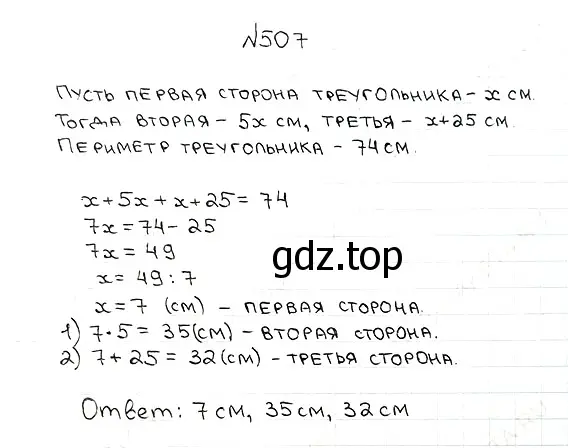 №507
Пусть первая сторона треугольника - x см.
Тогда вторая - 5x см, третья - x+25 см.
Периметр треугольника - 74 см.
x+5x+x+25=74
7x=74-25
7x=49
gdz.top
x=49:7
x=7 (см) - первая сторона.
1) 7·5=35(см) - вторая сторона.
2) 7+25=32(см) - третья сторона.
Ответ: 7 см, 35 см, 32 см